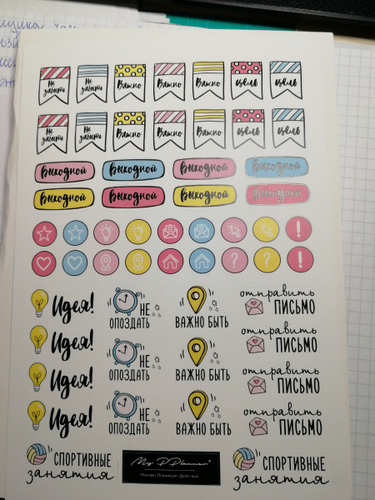 Не забыть Не забыть Важно Важно Важно Цель Цель
Не забыть Не забыть Важно Важно Важно Цель Цель
Выходной Выходной Выходной Выходной
Выходной Выходной Выходной Выходной
Идея! НЕ ОПОЗДАТЬ ВАЖНО БЫТЬ отправить ПИСЬМО
Идея! НЕ ОПОЗДАТЬ ВАЖНО БЫТЬ отправить ПИСЬМО
Идея! НЕ ОПОЗДАТЬ ВАЖНО БЫТЬ отправить ПИСЬМО
Идея! НЕ ОПОЗДАТЬ ВАЖНО БЫТЬ отправить ПИСЬМО
СПОРТИВНЫЕ занятия My Planner СПОРТИВНЫЕ занятия